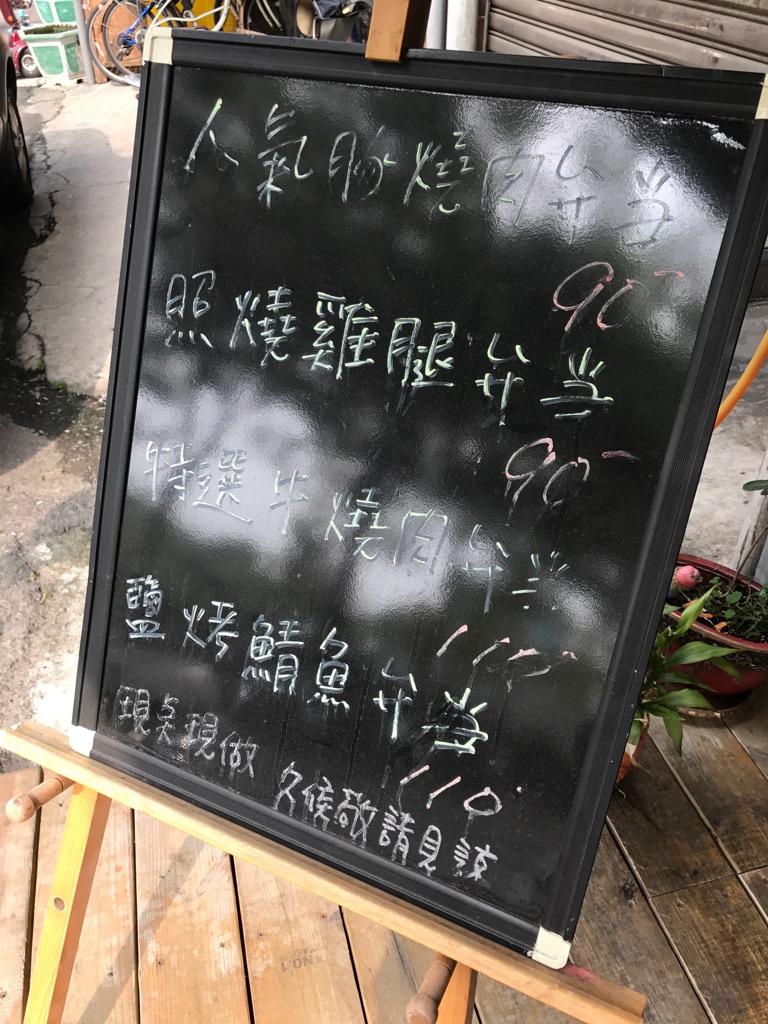 人氣豚燒肉弁当
90-
照燒雞腿弁当
90-
特選牛燒肉弁当
110-
鹽烤鯖魚弁当
110
現点現做 久候敬請見諒